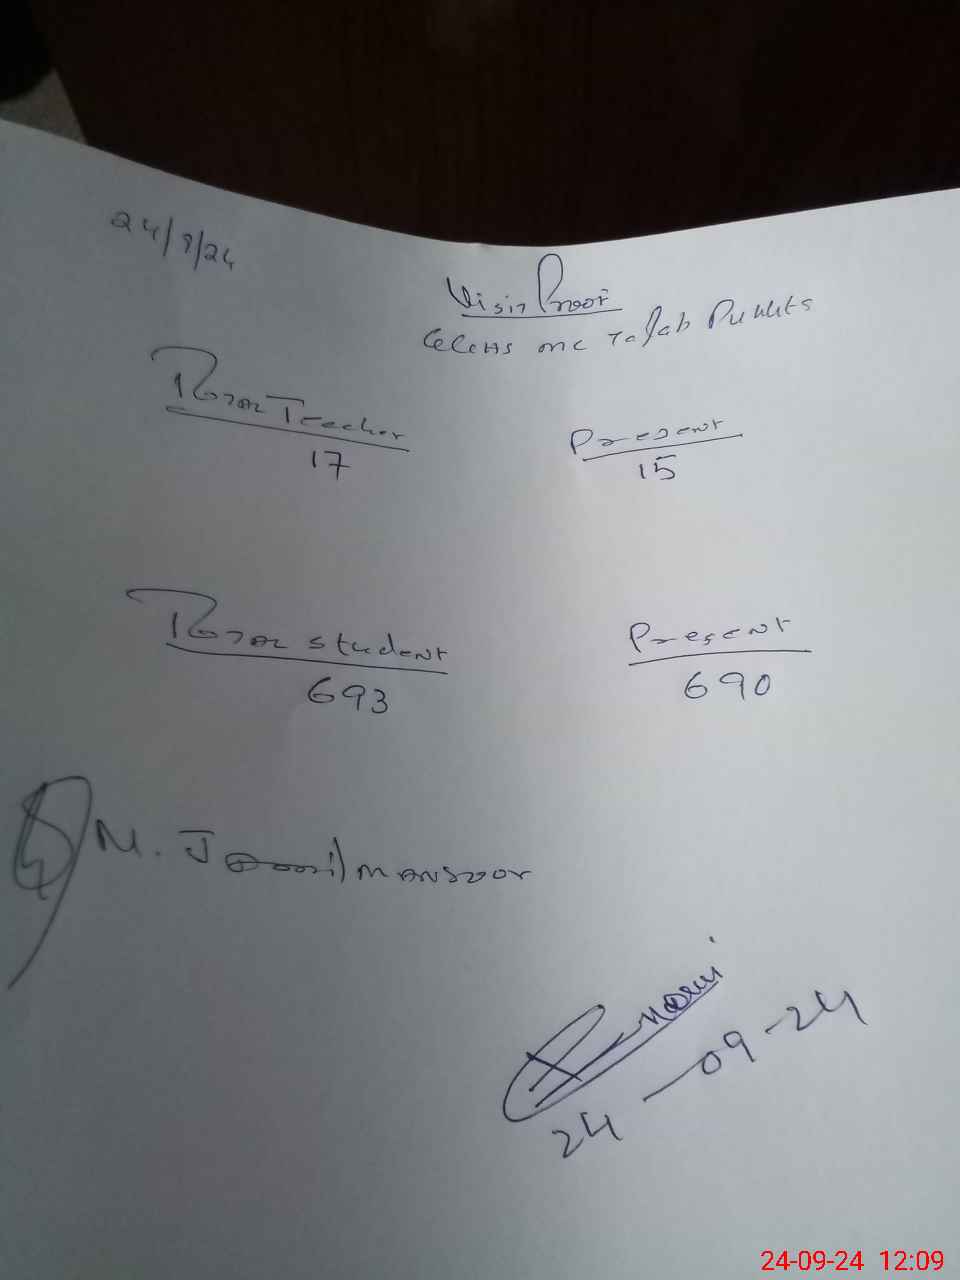 24/9/24
Visit Proof
GGCHS MC
Total Teacher Present
17 15
Total student Present
693 690
M. Jamil Mansoor
24-09-24
24-09-24 12:09